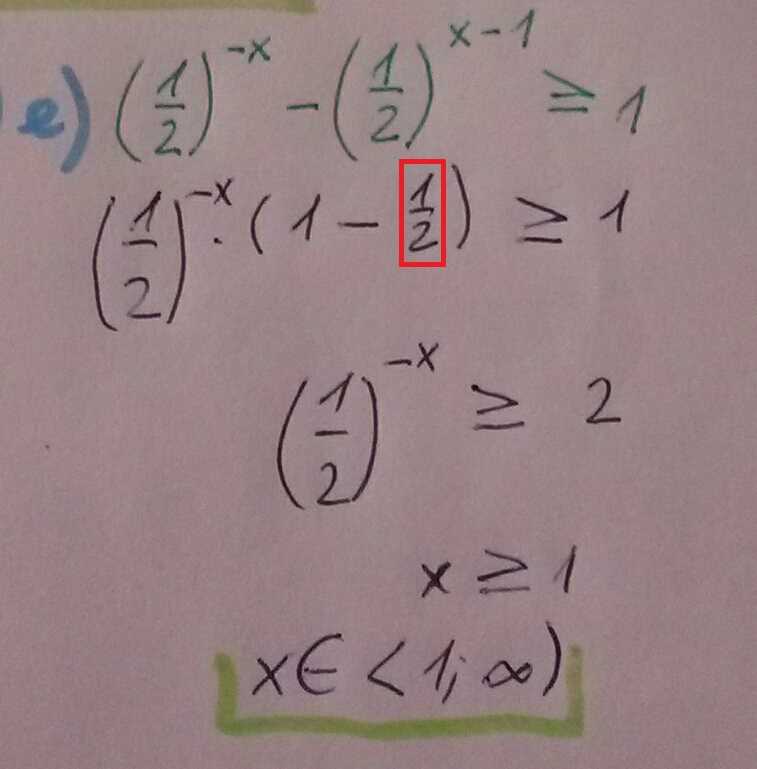 e) (1/2)^{-x} - (1/2)^{x-1} ≥ 1
(1/2)^{-x} · (1 - 1/2) ≥ 1
(1/2)^{-x} ≥ 2
x ≥ 1
x ∈ <1; ∞)